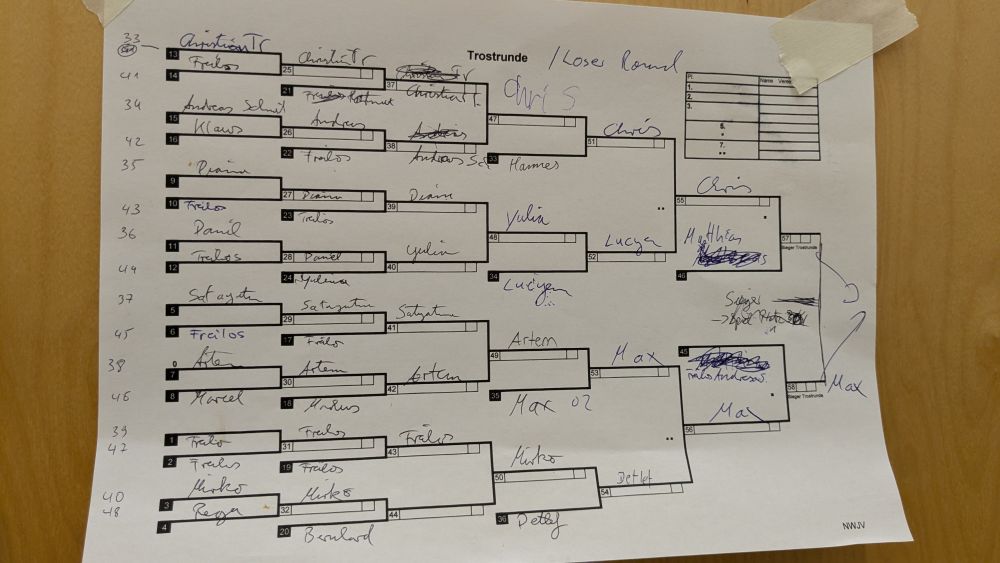 Trostrunde / Loser Round
Pl. Name Verein
1.
2.
3.
5.
7.
33
13 Christian Tr
14 Freilos
41
34
15 Andreas Schmit
16 Klaus
42
35
9 Diana
10 Freilos
43
36
11 Daniel
12 Freilos
44
37
5
6 Freilos
45
38
7 Artem
8 Marcel
46
39
1 Freilos
2 Freilos
47
40
3 Mirko
4
48
25 Christian Tr
21
26 Andreas
22 Freilos
27 Diana
23 Freilos
28 Daniel
24
29
17 Freilos
30 Artem
18 Markus
31 Freilos
19 Freilos
32 Mirko
20 Bernhard
37 Christian T.
38 Andreas Sch
39 Diana
40 Yulia
41
42 Artem
43 Freilos
44
47 Chris
33 Hannes
48 Yulia
34 Lucyen
49 Artem
35 Max 02
50 Mirko
36 Detlef
51 Chris
52 Lucyen
53 Max
54 Detlef
55 Chris
46 Matthias
45 Andreas
56 Max
57
Sieger Trostrunde
Sieger
58 Max
Sieger Trostrunde
NWJV